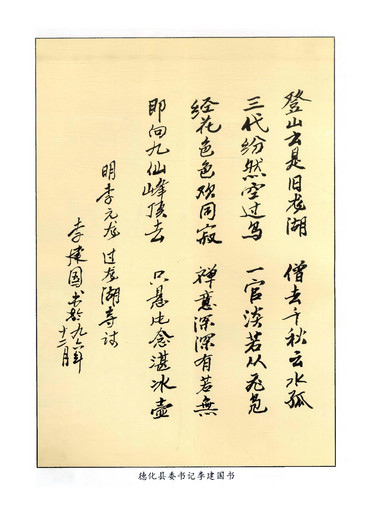 登山云是旧龙湖 僧去千秋云水孤
三代纷然空过鸟 一官淡若从飞凫
经花色色同寂 禅意深深有若無
即向九仙峰顶去 只悬此念湛冰壶
明李元龙过龙湖寺诗
李建国书於九六年
十二月
德化县委书记李建国书